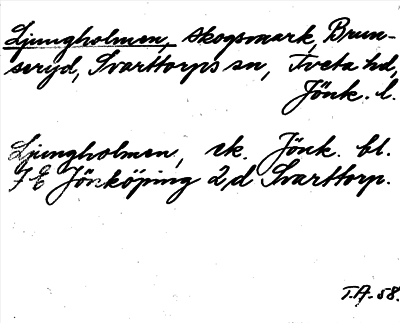 Ljungholmen, skogsmark, Brun-
seryd, Svarttorps sn, Tveta hd,
Jönk. l.
Ljungholmen, ek. Jönk. bl.
7 E Jönköping 2d Svarttorp.
T.A. 58.